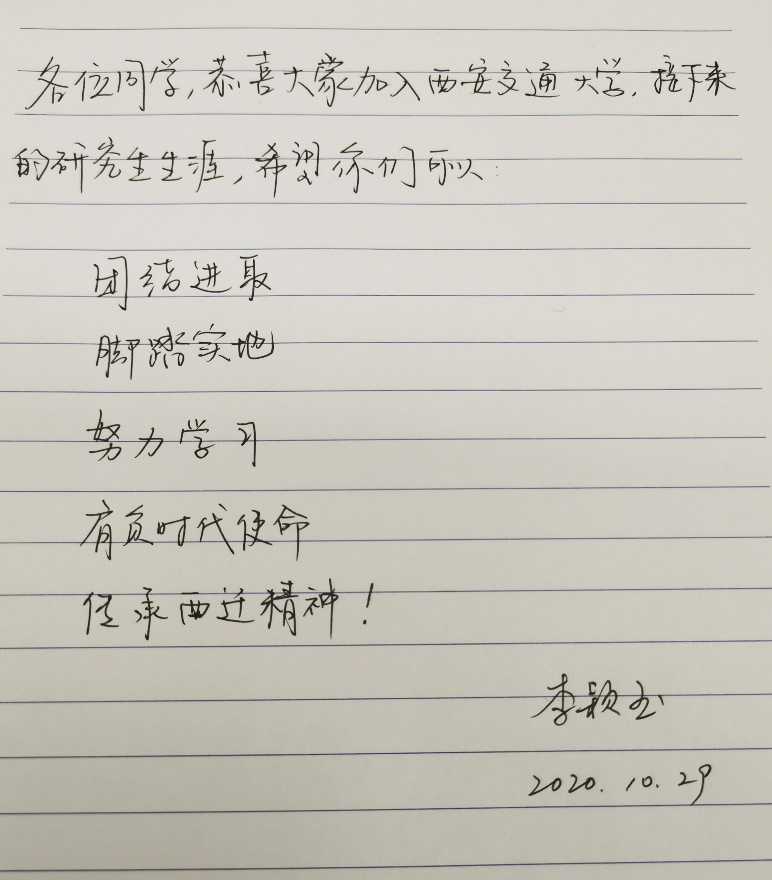 各位同学,恭喜大家加入西安交通大学,接下来
的研究生生涯,希望你们可以:
团结进取
脚踏实地
努力学习
肩负时代使命
传承西迁精神!
李颖
2020.10.29